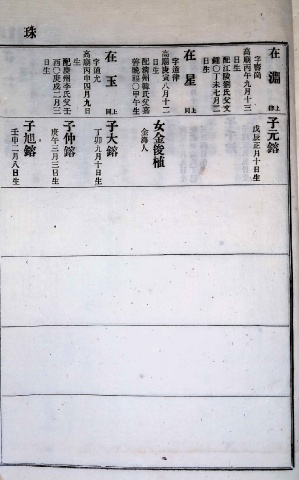 珠
在淵
上律
字聲尚
高廟丙午九月十三
日生
配江陵劉氏父文
鍾〇丁未七月二
日生
子元鎔
戊辰正月十日生
在星
上同
字道律
高廟庚寅八月十二
日生
配清州韓氏父嘉
善曉源〇甲午生
女金俊植
金海人
在玉
上同
字道允
高廟丙申四月九日
生
配慶州李氏父王
丙〇庚戌二月三
日生
子大鎔
丁卯九月十日生
子仲鎔
庚午三月三日生
子旭鎔
壬申二月八日生